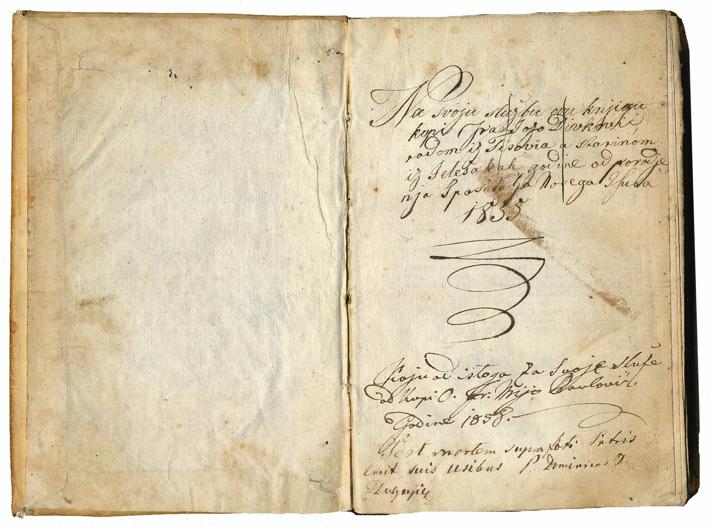 Na svoju službu ovu knjigu
kupi Fra Jozo Divković
rodom iz a starinom
iz godine od porodje
nja Spasitelja Našega Isusa
1855
Koju od istoga za svoje služe
od kupi O. Fr: Mijo Pavlović,
Godine 1858.-
Post mortem suprafati Patris
emit suis usibus P. Dominicus D.